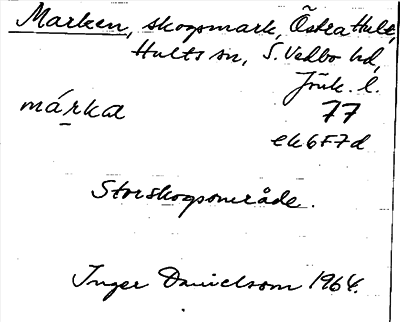 Marken, skogsmark, Östra Hult,
Hults sn, S. Vedbo hd,
Jönk. l.
márka 77
ek 6F7d
Storskogsområde.
Inger Danielsson 1964.